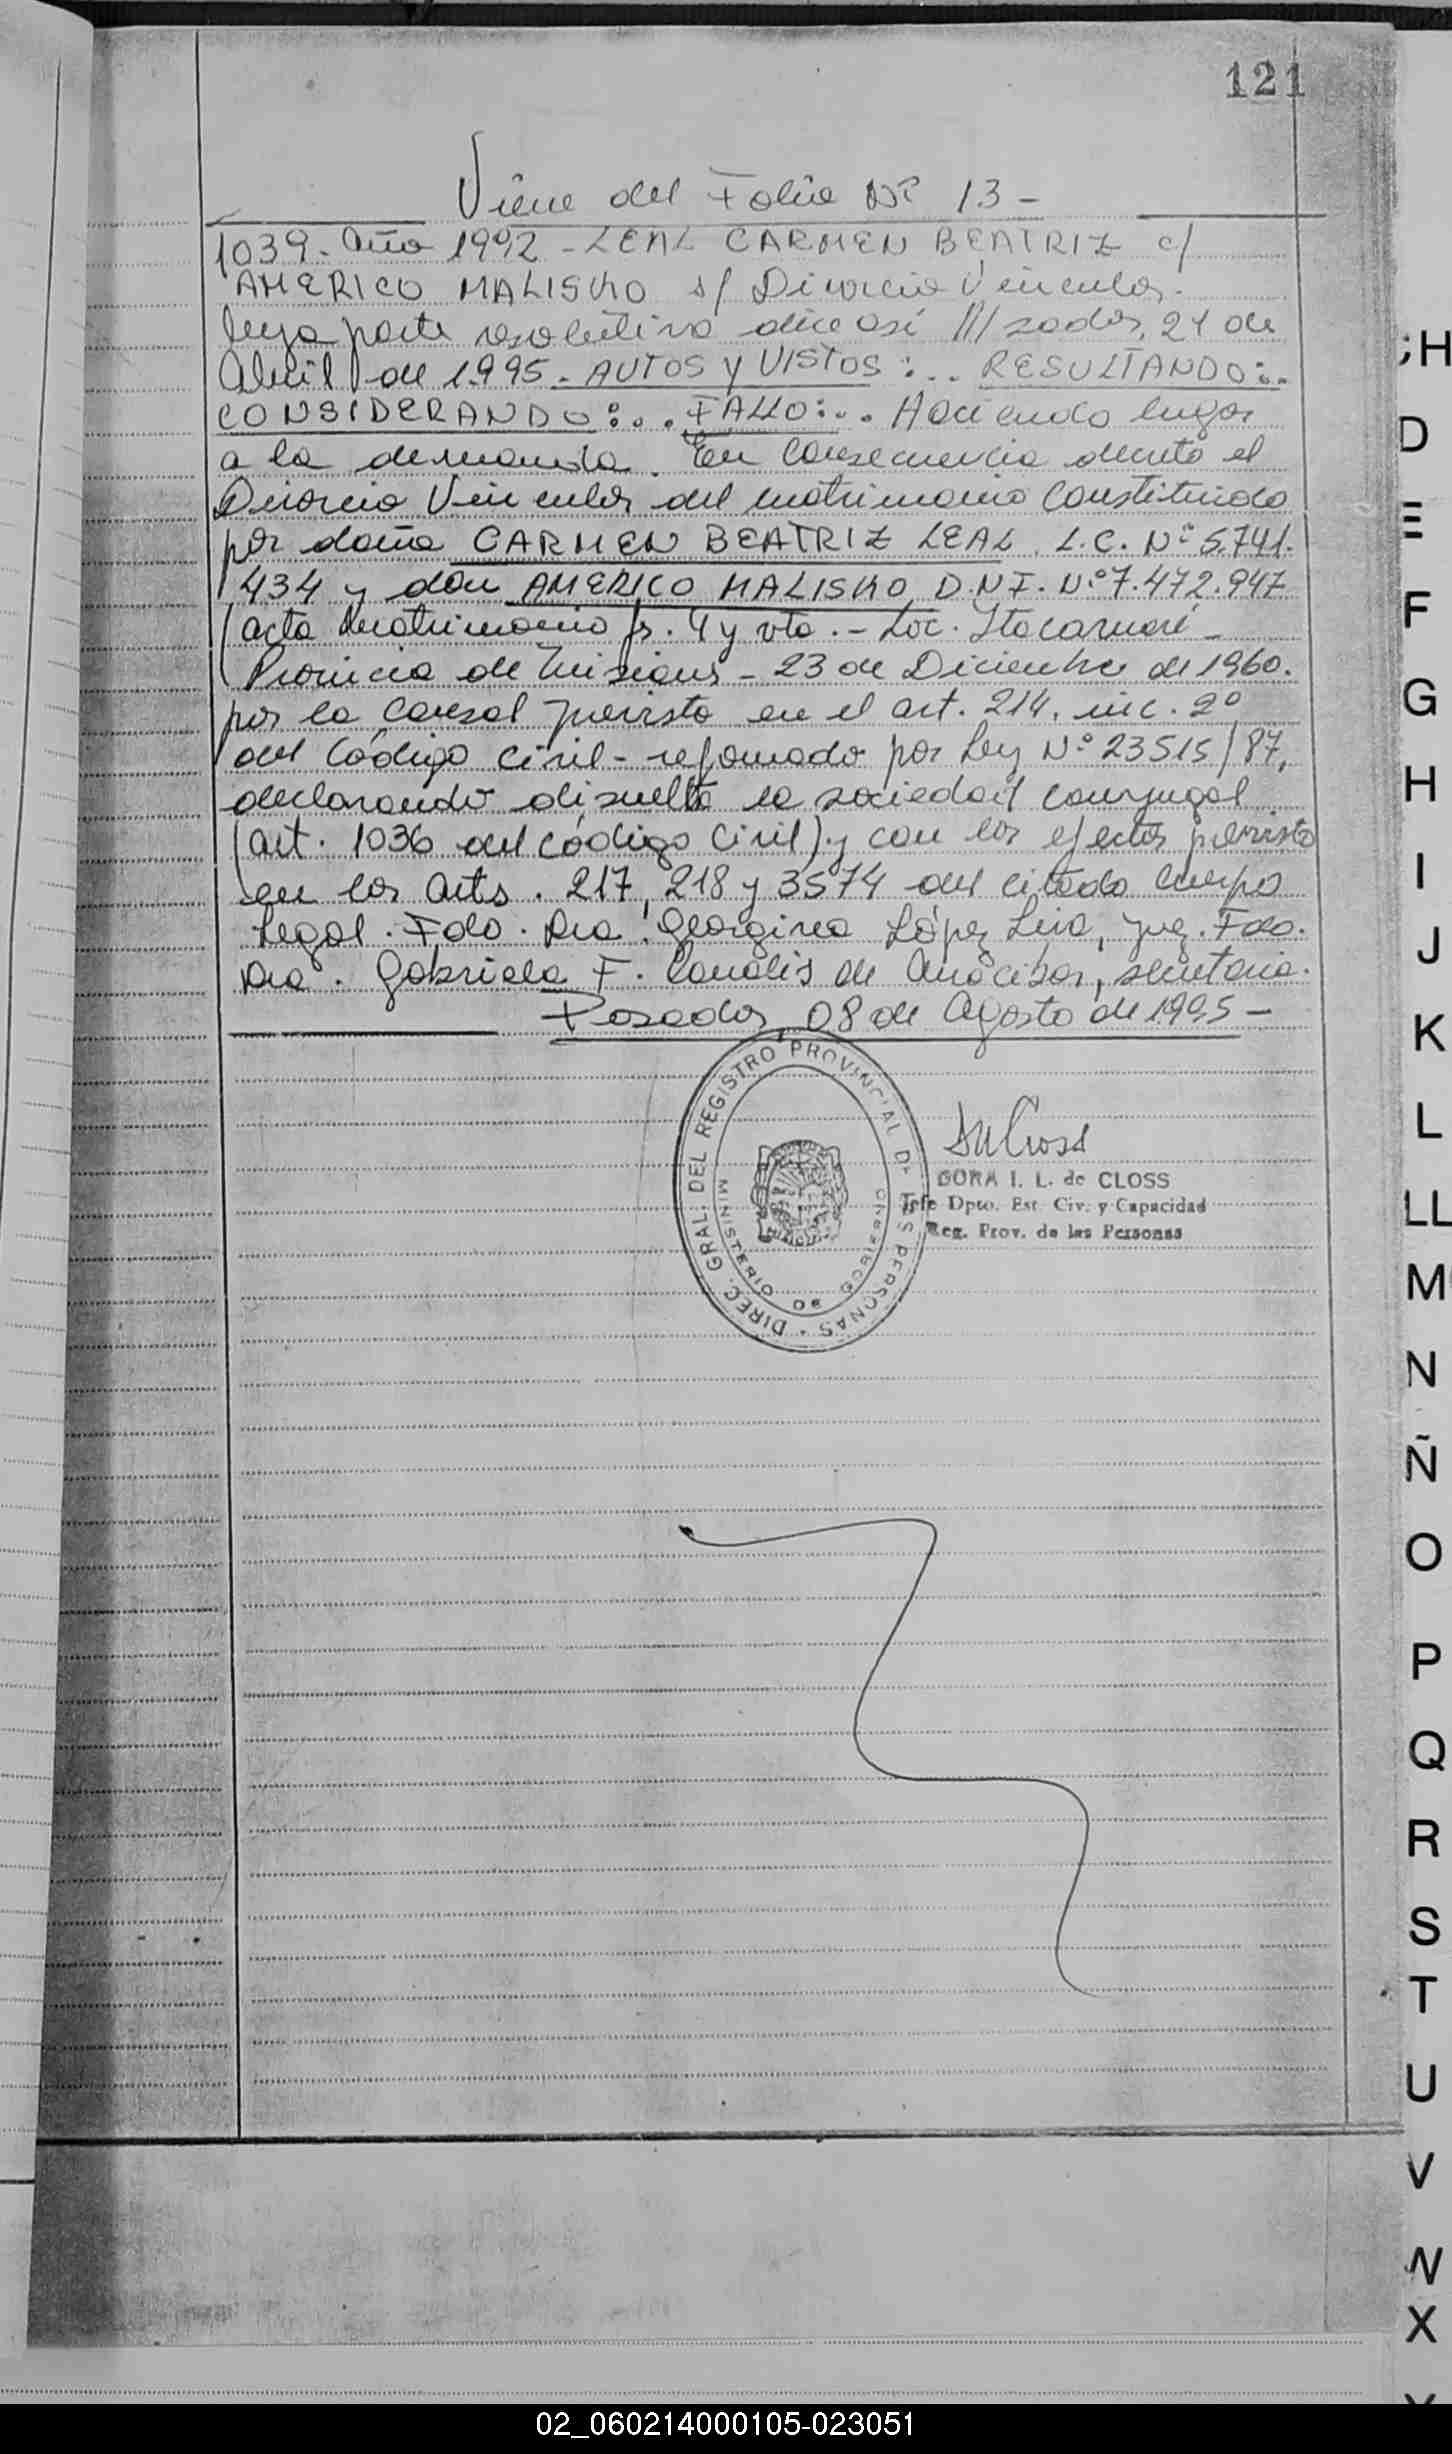 121
Viene del Folio Nº 13 -
1039 - Año 1992 - LEAL CARMEN BEATRIZ c/
AMERICO MALISKO s/ Divorcio Vincular -
cuya parte resolutiva dice así ///sadas, 21 de
Abril de 1995 - AUTOS y VISTOS: .. RESULTANDO: ..
CONSIDERANDO: .. FALLO: .. Haciendo lugar
a la demanda. En consecuencia decreto el
Divorcio Vincular del matrimonio constituido
por doña CARMEN BEATRIZ LEAL, L.C. Nº 5.741.
434 y don AMERICO MALISKO D.N.I. Nº 7.472.947
(acta matrimonio fs. 4 y vta. - Loc. Itacaruaré -
Provincia de Misiones - 23 de Diciembre de 1960.
por la causal prevista en el art. 214, inc. 2º
del Código Civil - reformado por Ley Nº 23515/87,
declarando disuelta la sociedad conyugal
(art. 1036 del Código Civil) y con los efectos previsto
en los arts. 217, 218 y 3574 del citado cuerpo
Legal. Fdo. Dra. Georgina López Liva, Juez. Fdo.
Dra. Gabriela F. Canalis de , secretaria.
Posadas, 08 de Agosto de 1995 -
DIREC. GRAL. DEL REGISTRO PROVINCIAL DE LAS PERSONAS
MINISTERIO DE GOBIERNO
DORA I. L. de CLOSS
Jefe Dpto. Est. Civ. y Capacidad
Reg. Prov. de las Personas
CH
D
E
F
G
H
I
J
K
L
LL
M
N
Ñ
O
P
Q
R
S
T
U
V
W
X
02_060214000105-023051